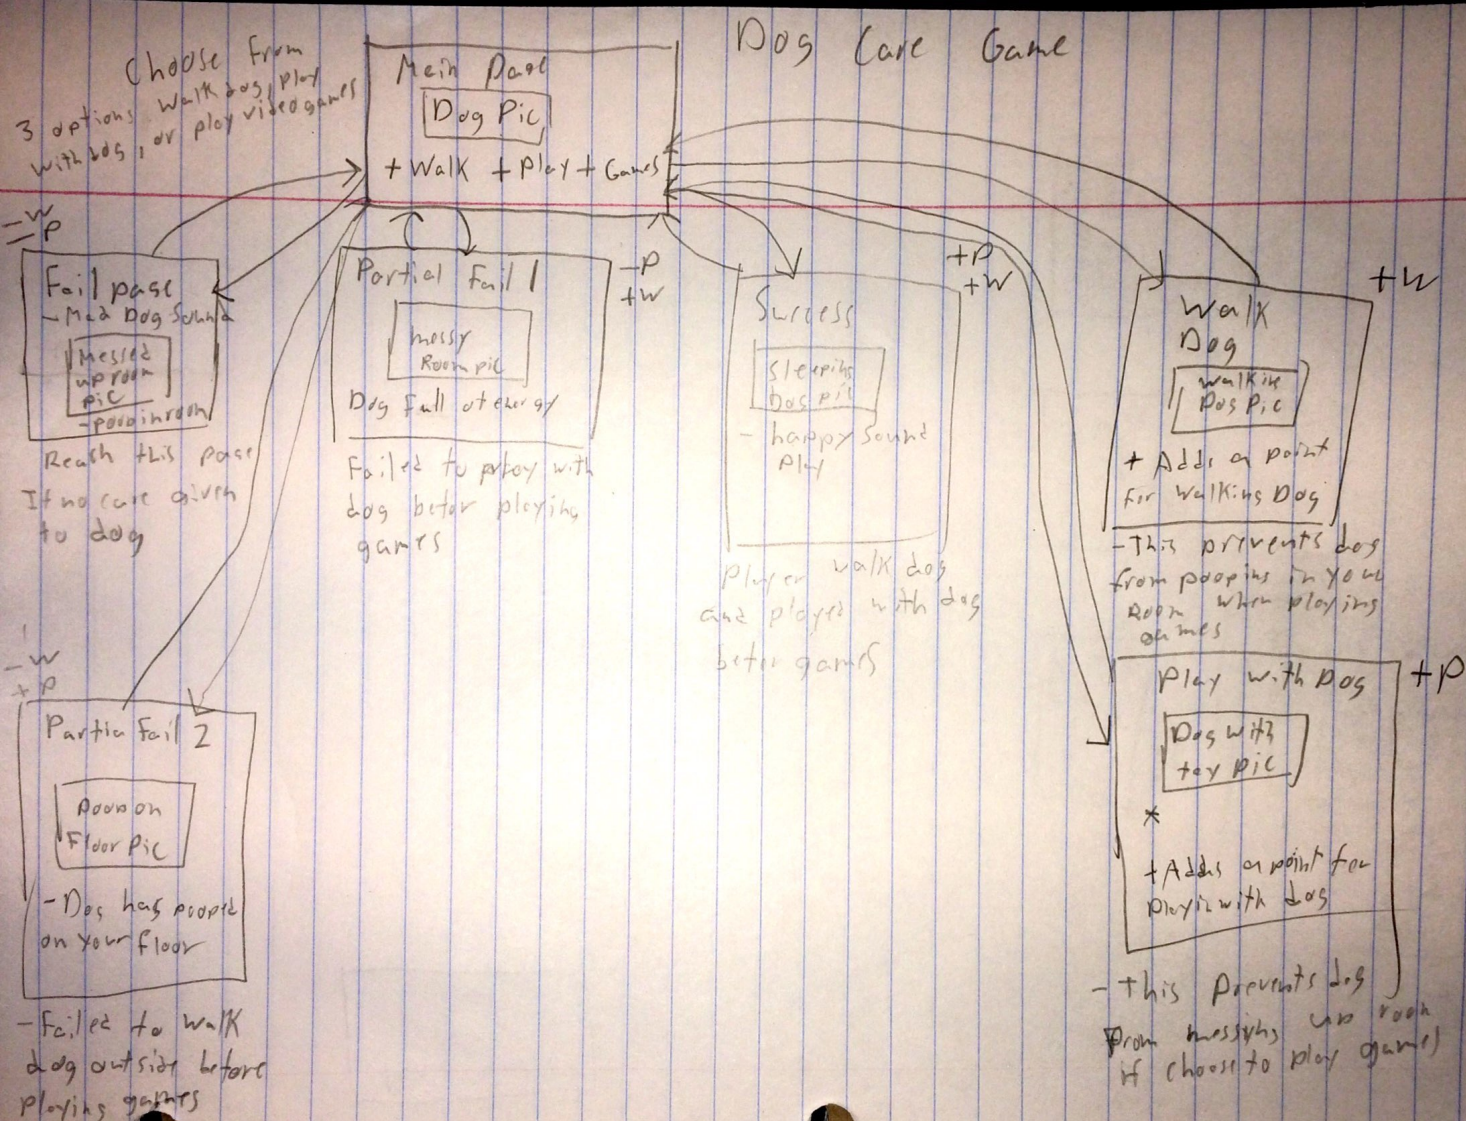 Dog Care Game
Choose from
3 options walk dog, play
with dog, or play videogames
Main Page
Dog Pic
+ Walk + Play + Games
- W
- P
Fail page
- Mad Dog Sound
Messed
up room
pic
- poop in room
Reach this page
If no care given
to dog
Partial Fail 1
- P
+ W
messy
Room pic
Dog full of energy
Failed to play with
dog befor playing
games
+ P
+ W
Success
Sleeping
Dog pic
- happy sound
play
Player walk dog
and played with dog
befor games
+ W
Walk
Dog
walkin
Dog Pic
+ Adds a point
for walking Dog
- This prevents dog
from pooping in your
Room when playing
games
- W
+ P
Partia Fail 2
Poop on
Floor Pic
- Dog has pooped
on your floor
- Failed to walk
dog outside before
playing games
+ P
Play with Dog
Dog with
toy pic
*
+ Adds a point for
playin with dog
- This prevents dog
From messing up room
if choose to play games